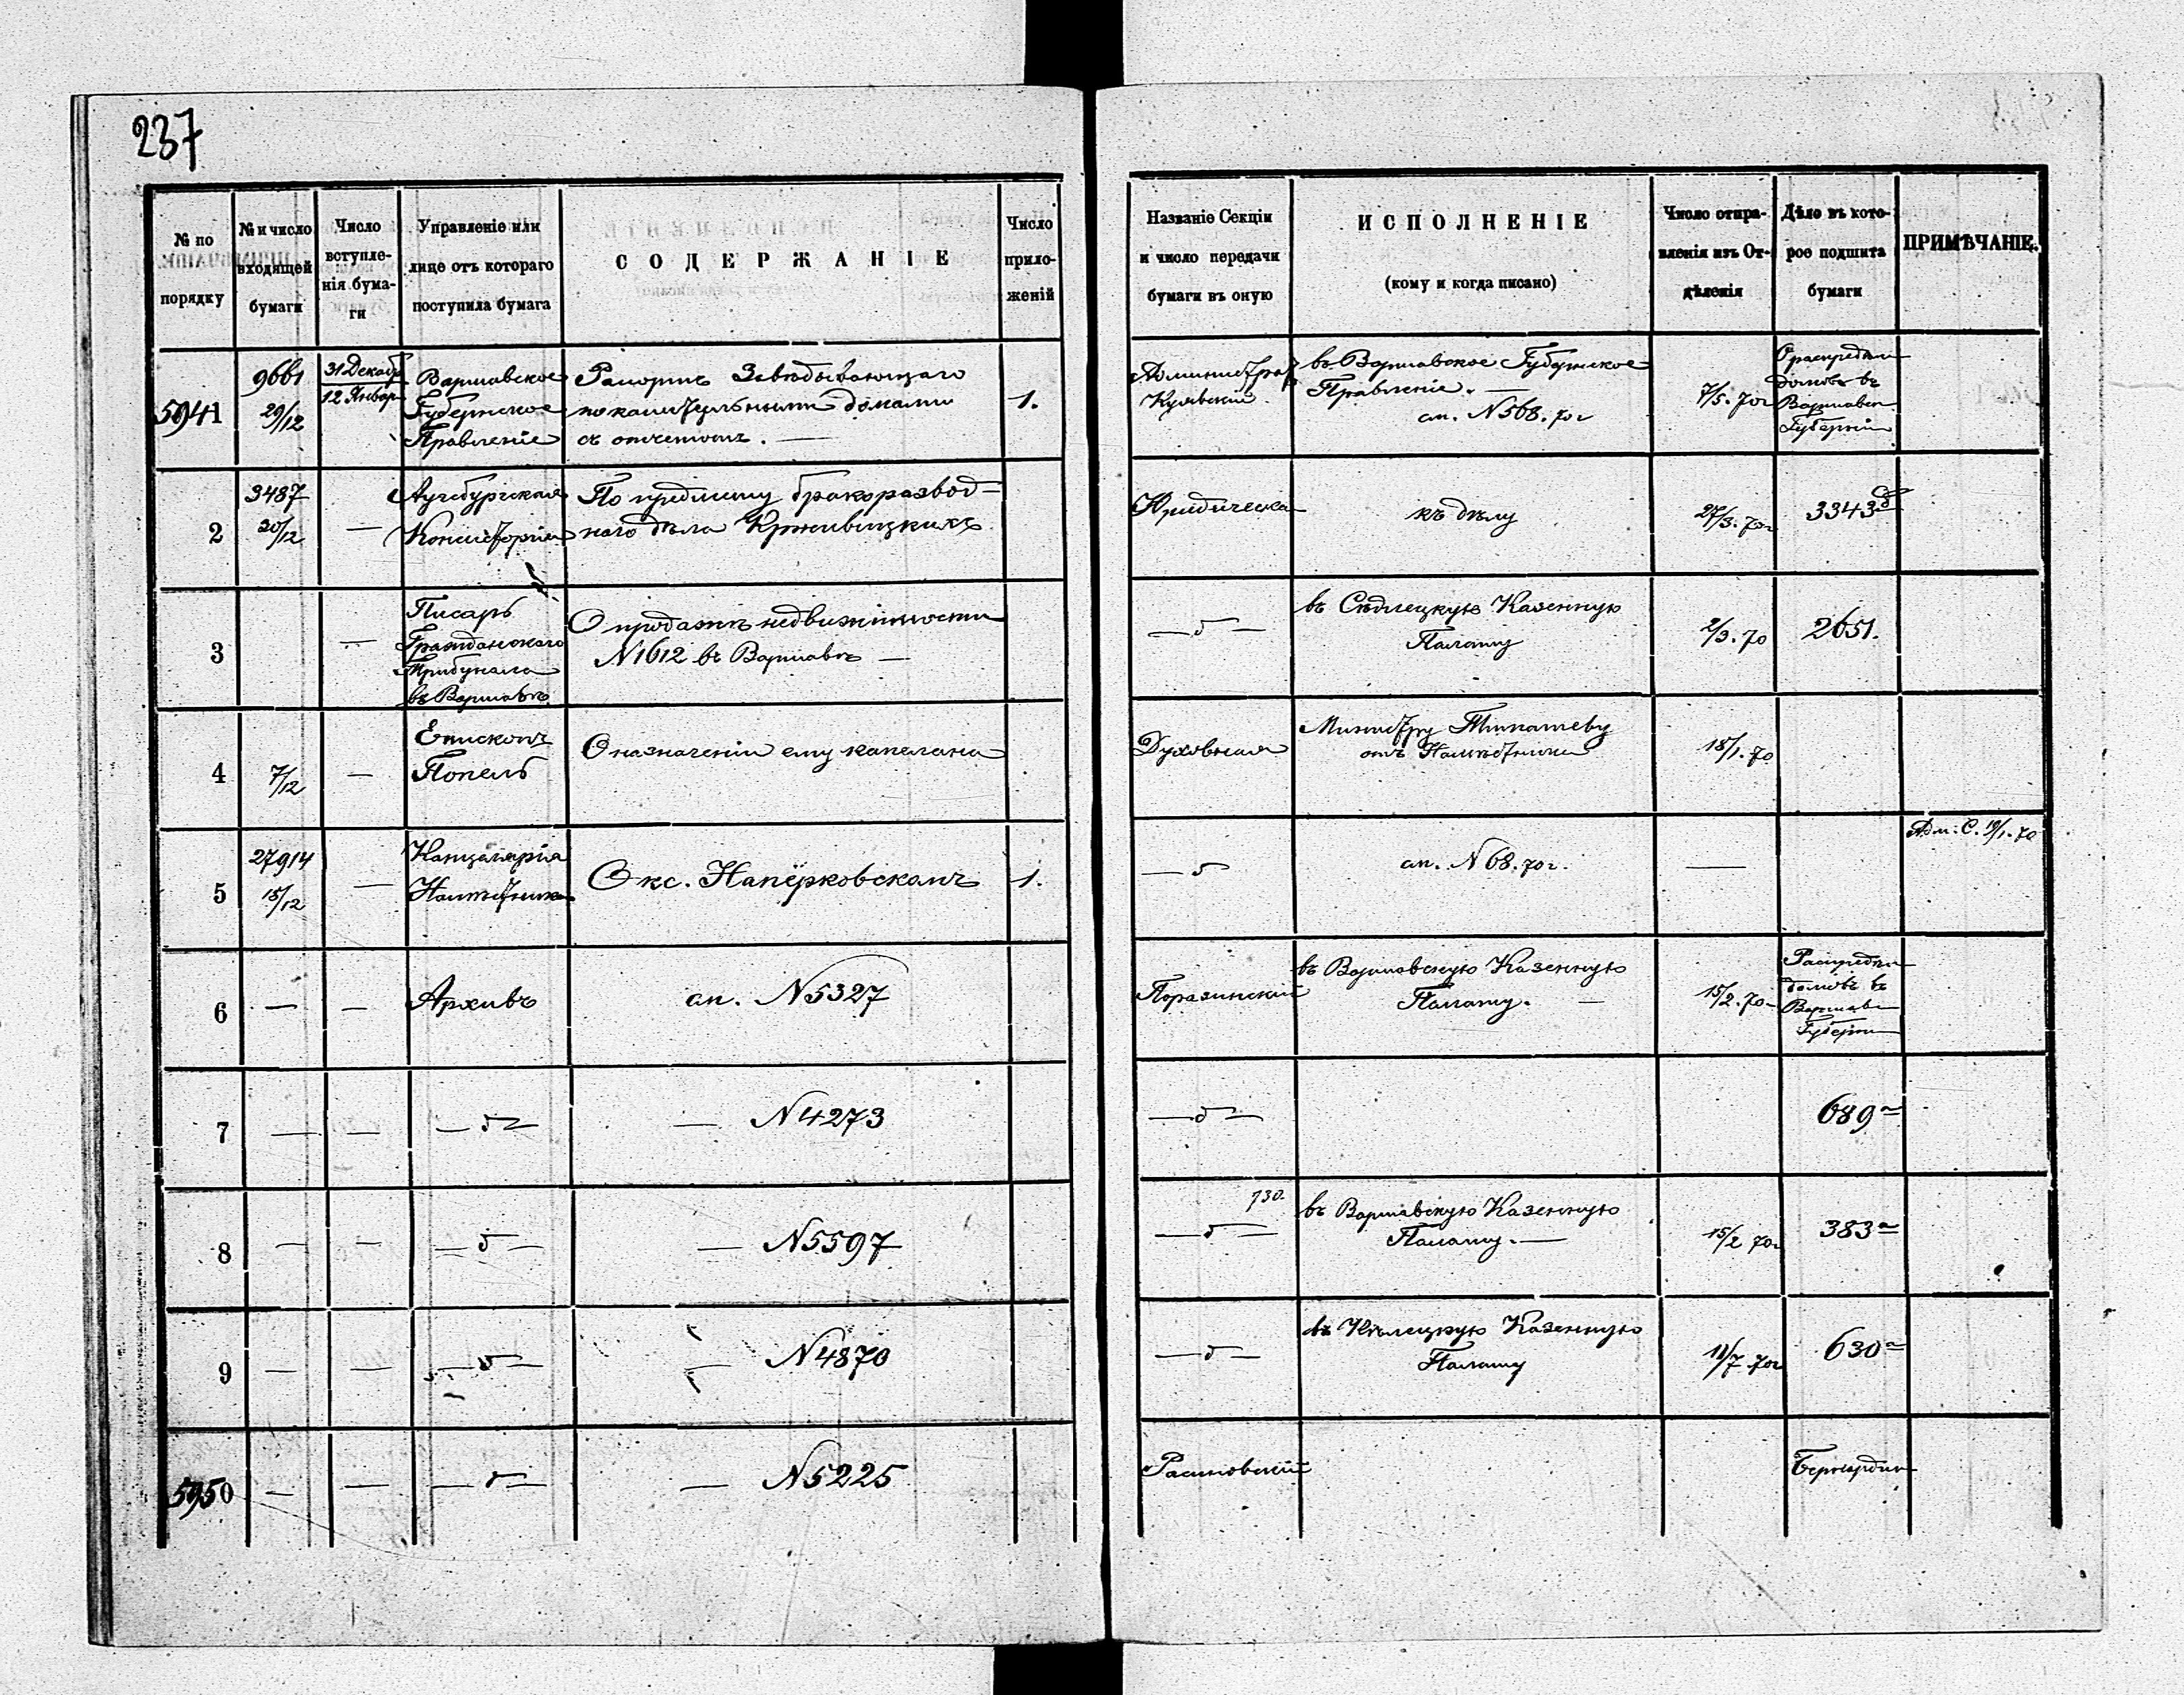 237
№ по порядку
№ и число входящей бумаги
Число вступле-
нія бума-
ги
Управленіе или
лице отъ котораго
поступила бумага
СОДЕРЖАНІЕ
Число
прило-
женій
Названіе Секціи
и число передачи
бумаги въ оную
ИСПОЛНЕНІЕ
(кому и когда писано)
Число отпра-
вленія изъ От-
дѣленія
Дѣло въ кото-
рое подшита
бумаги
ПРИМѢЧАНІЕ.
5941
9661
29/12
31 Декаб
12 Январ
Варшавское
Губернское
Правленіе
Рапортъ Завѣдывающаго
домами
съ отчетомъ. —
1.
въ Варшавское Губернское
Правленіе. —
сл. N 568. 70 г
7/5. 70 г
О распредѣл
домовъ въ
Варшавск
Губерніи
2
3487
20/12
—
Аугсбургская
Консисторія
По предмету бракоразвод-
наго дѣла Кржевицкихъ
Юридическа
къ дѣлу
27/3. 70 г
3343
3
—
Писарь
Гражданскаго
Трибунала
въ Варшавѣ
О продажѣ недвижимости
N 1612 въ Варшавѣ —
— д —
въ Сѣдлецкую Казенную
Палату
2/3. 70
2651.
4
7/12
—
Епископъ
Попель
О назначеніи ему капелана
Духовная
Министру Тимашеву
отъ Намѣстника
18/1. 70
5
27914
15/12
—
Канцелярія
Намѣстника
О кс. Напёрковскомъ
1.
— д
сл. N 68. 70 г.
—
Адм: С. 19/1. 70
6
—
—
Архивъ
сл. N 5327
Поразинскій
въ Варшавскую Казенную
Палату. —
15/2. 70
Распредѣл
домовъ въ
Варшавс
Губерн
7
—
—
— д —
— N 4273
— д —
689 а
8
—
—
— д —
— N 5597
— д —
730.
въ Варшавскую Казенную
Палату. —
15/2 70 г
383 а
9
—
—
— д —
— N 4870
— д —
въ Кѣлецкую Казенную
Палату
11/7 70 г
630 а
5950
—
—
— д —
— N 5225
Бернардин